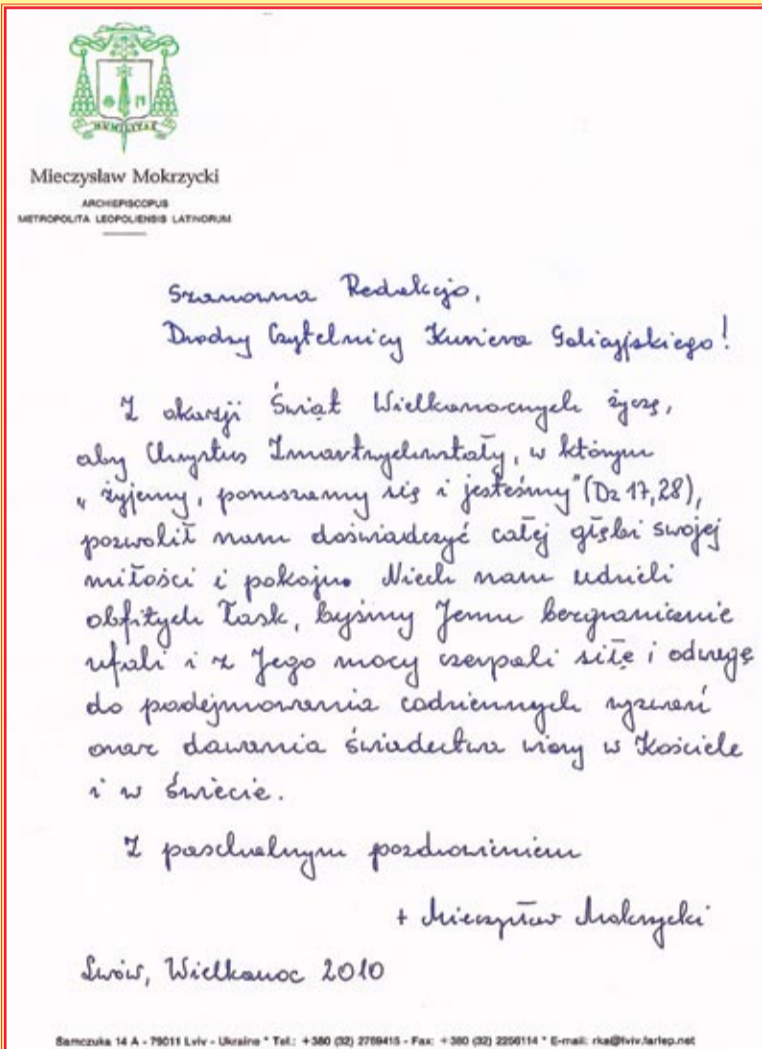 HUMILITAS
Mieczysław Mokrzycki
ARCHIEPISCOPUS
METROPOLITA LEOPOLIENSIS LATINORUM
Szanowna Redakcjo,
Drodzy Czytelnicy Kuriera Galicyjskiego!
Z okazji Świąt Wielkanocnych życzę,
aby Chrystus Zmartwychwstały, w którym
„żyjemy, poruszamy się i jesteśmy" (Dz 17,28),
pozwolił nam doświadczyć całej głębi swojej
miłości i pokoju. Niech nam udzieli
obfitych łask, byśmy Jemu bezgranicznie
ufali i z Jego mocy czerpali siłę i odwagę
do podejmowania codziennych wyzwań
oraz dawania świadectwa wiary w Kościele
i w świecie.
Z paschalnym pozdrowieniem
+ Mieczysław Mokrzycki
Lwów, Wielkanoc 2010
Samczuka 14 A - 79011 Lviv - Ukraine * Tel.: +380 (32) 2769415 - Fax: +380 (32) 2256114 * E-mail: rka@lviv.farlep.net